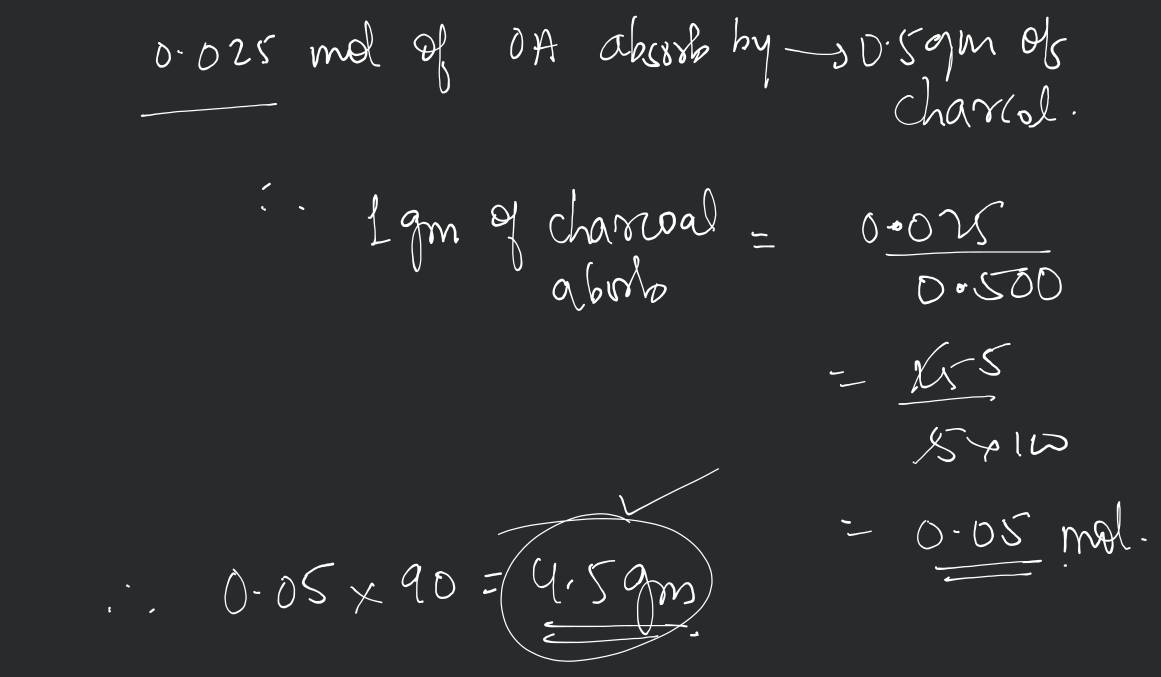 0.025 mol of OA absorb by → 0.5 gm of
charcol.
∴ 1 gm of charcoal = 0.025
absorb 0.500
= 25 5
5×100
= 0.05 mol.
∴ 0.05 × 90 = 4.5 gm